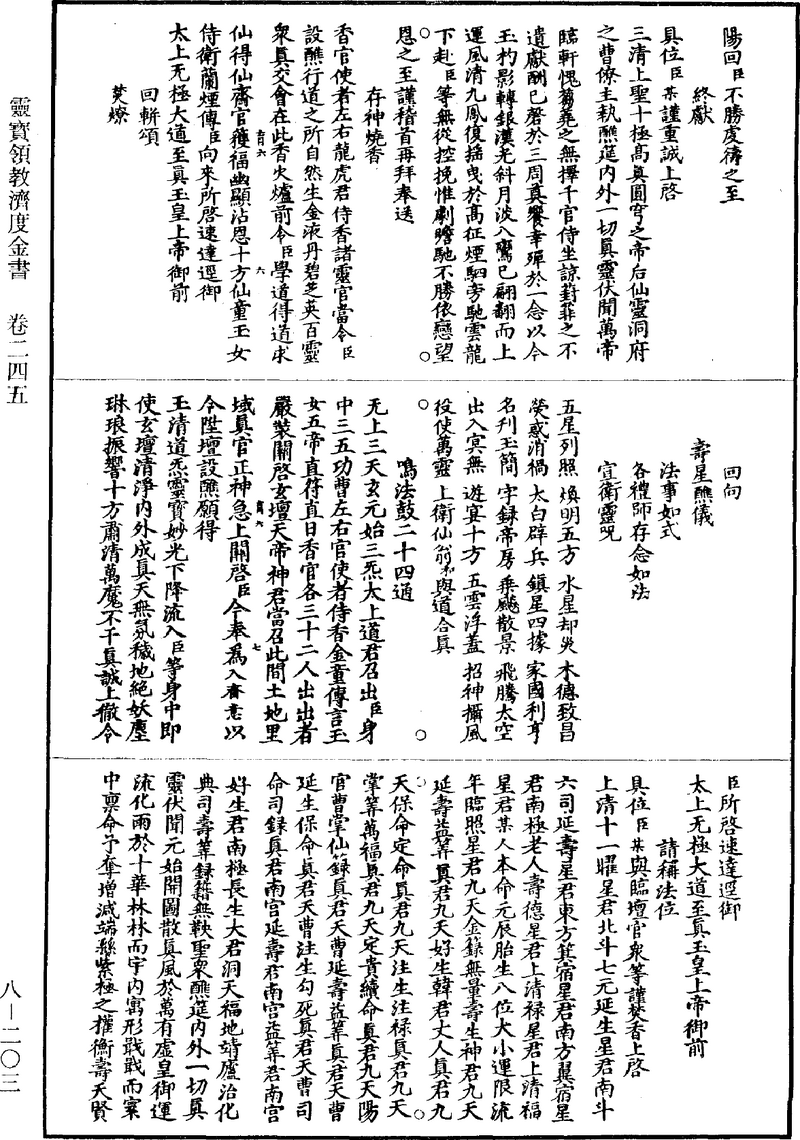 陽回臣不勝虔禱之至
終獻
具位臣某謹重誠上啓
三清上聖十極高真圓穹之帝后仙靈洞府
之曹僚主執醮筵內外一切真靈伏聞萬帝
臨軒愧芻蕘之無擇千官侍坐諒葑菲之不
遺獻酬已磬於三周真饗幸殫於一念以今
玉杓影轉銀漢光斜月波入而鸞已翩翻而上
運風清九鳳復搖曳於高征煙駟旁馳雲龍
下赴臣等無從控挽惟劇瞻馳不勝依戀望
恩之至謹稽首再拜奉送
存神燒香
香官使者左右龍虎君侍香諸靈官當令臣
設醮行道之所自然生金液丹碧芝英百靈
衆真交會在此香火爐前令臣學道得道求
仙得仙齋官獲福幽顯沾恩十方仙童玉女
侍衛蘭煙傳臣向來所啓速達逕御
太上无極大道至真玉皇上帝御前
回軿頌
焚燎
回向
壽星醮儀
法事如式
各禮師存念如法
宣衛靈咒
五星列照 煥明五方 水星却災 木德致昌
熒惑消禍 太白辟兵 鎮星四據 家國利亨
名刊玉簡 字録帝房 乘飈散景 飛騰太空
出入冥無 遊宴十方 五雲浮蓋 招神攝風
役使萬靈 上衛仙翁 與道合真
鳴法鼓二十四通
无上三天玄元始三炁太上道君召出臣身
中三五功曹左右官使者侍香金童傳言玉
女五帝直符直日香官各三十二人出出者
嚴裝關啓玄壇天帝神君當召此間土地里
域真官正神急上關啓臣今奉爲入齋意以
今陞壇設醮願得
玉清道炁靈寶妙光下降流入臣等身中即
使玄壇清淨內外成真天無氛穢地絕妖塵
琳琅振響十方肅清萬魔不干真誠上徹令
臣所啓速達逕御
太上无極大道至真玉皇上帝御前
請稱法位
具位臣某與臨壇官衆等謹焚香上啓
上清十一曜星君北斗七元延生星君南斗
六司延壽星君東方箕宿星君南方翼宿星
君南極老人壽德星君上清祿星君上清福
星君某人本命元辰胎生八位大小運限流
年臨照星君九天金籙無量壽生神君九天
延壽益筭真君九天好生韓君丈人真君九
天保命定命真君九天注生注祿真君九天
掌筭萬福真君九天定貴續命真君九天陽
官曹掌仙録真君天曹延壽益筭真君天曹
延生保命真君天曹注生勾死真君天曹司
命司録真君南宮延壽君南宮益筭君南宮
好生君南極長生大君洞天福地靖廬治化
典司壽筭録籍無鞅聖衆醮筵內外一切真
靈伏聞元始開圖散真風於萬有虛皇御運
流化雨於十華林林而宇內寓形戢戢而寰
中稟命予奪增減端繇紫極之權衡壽夭賢
靈寶領教濟度金書 卷二四五
八—二〇三